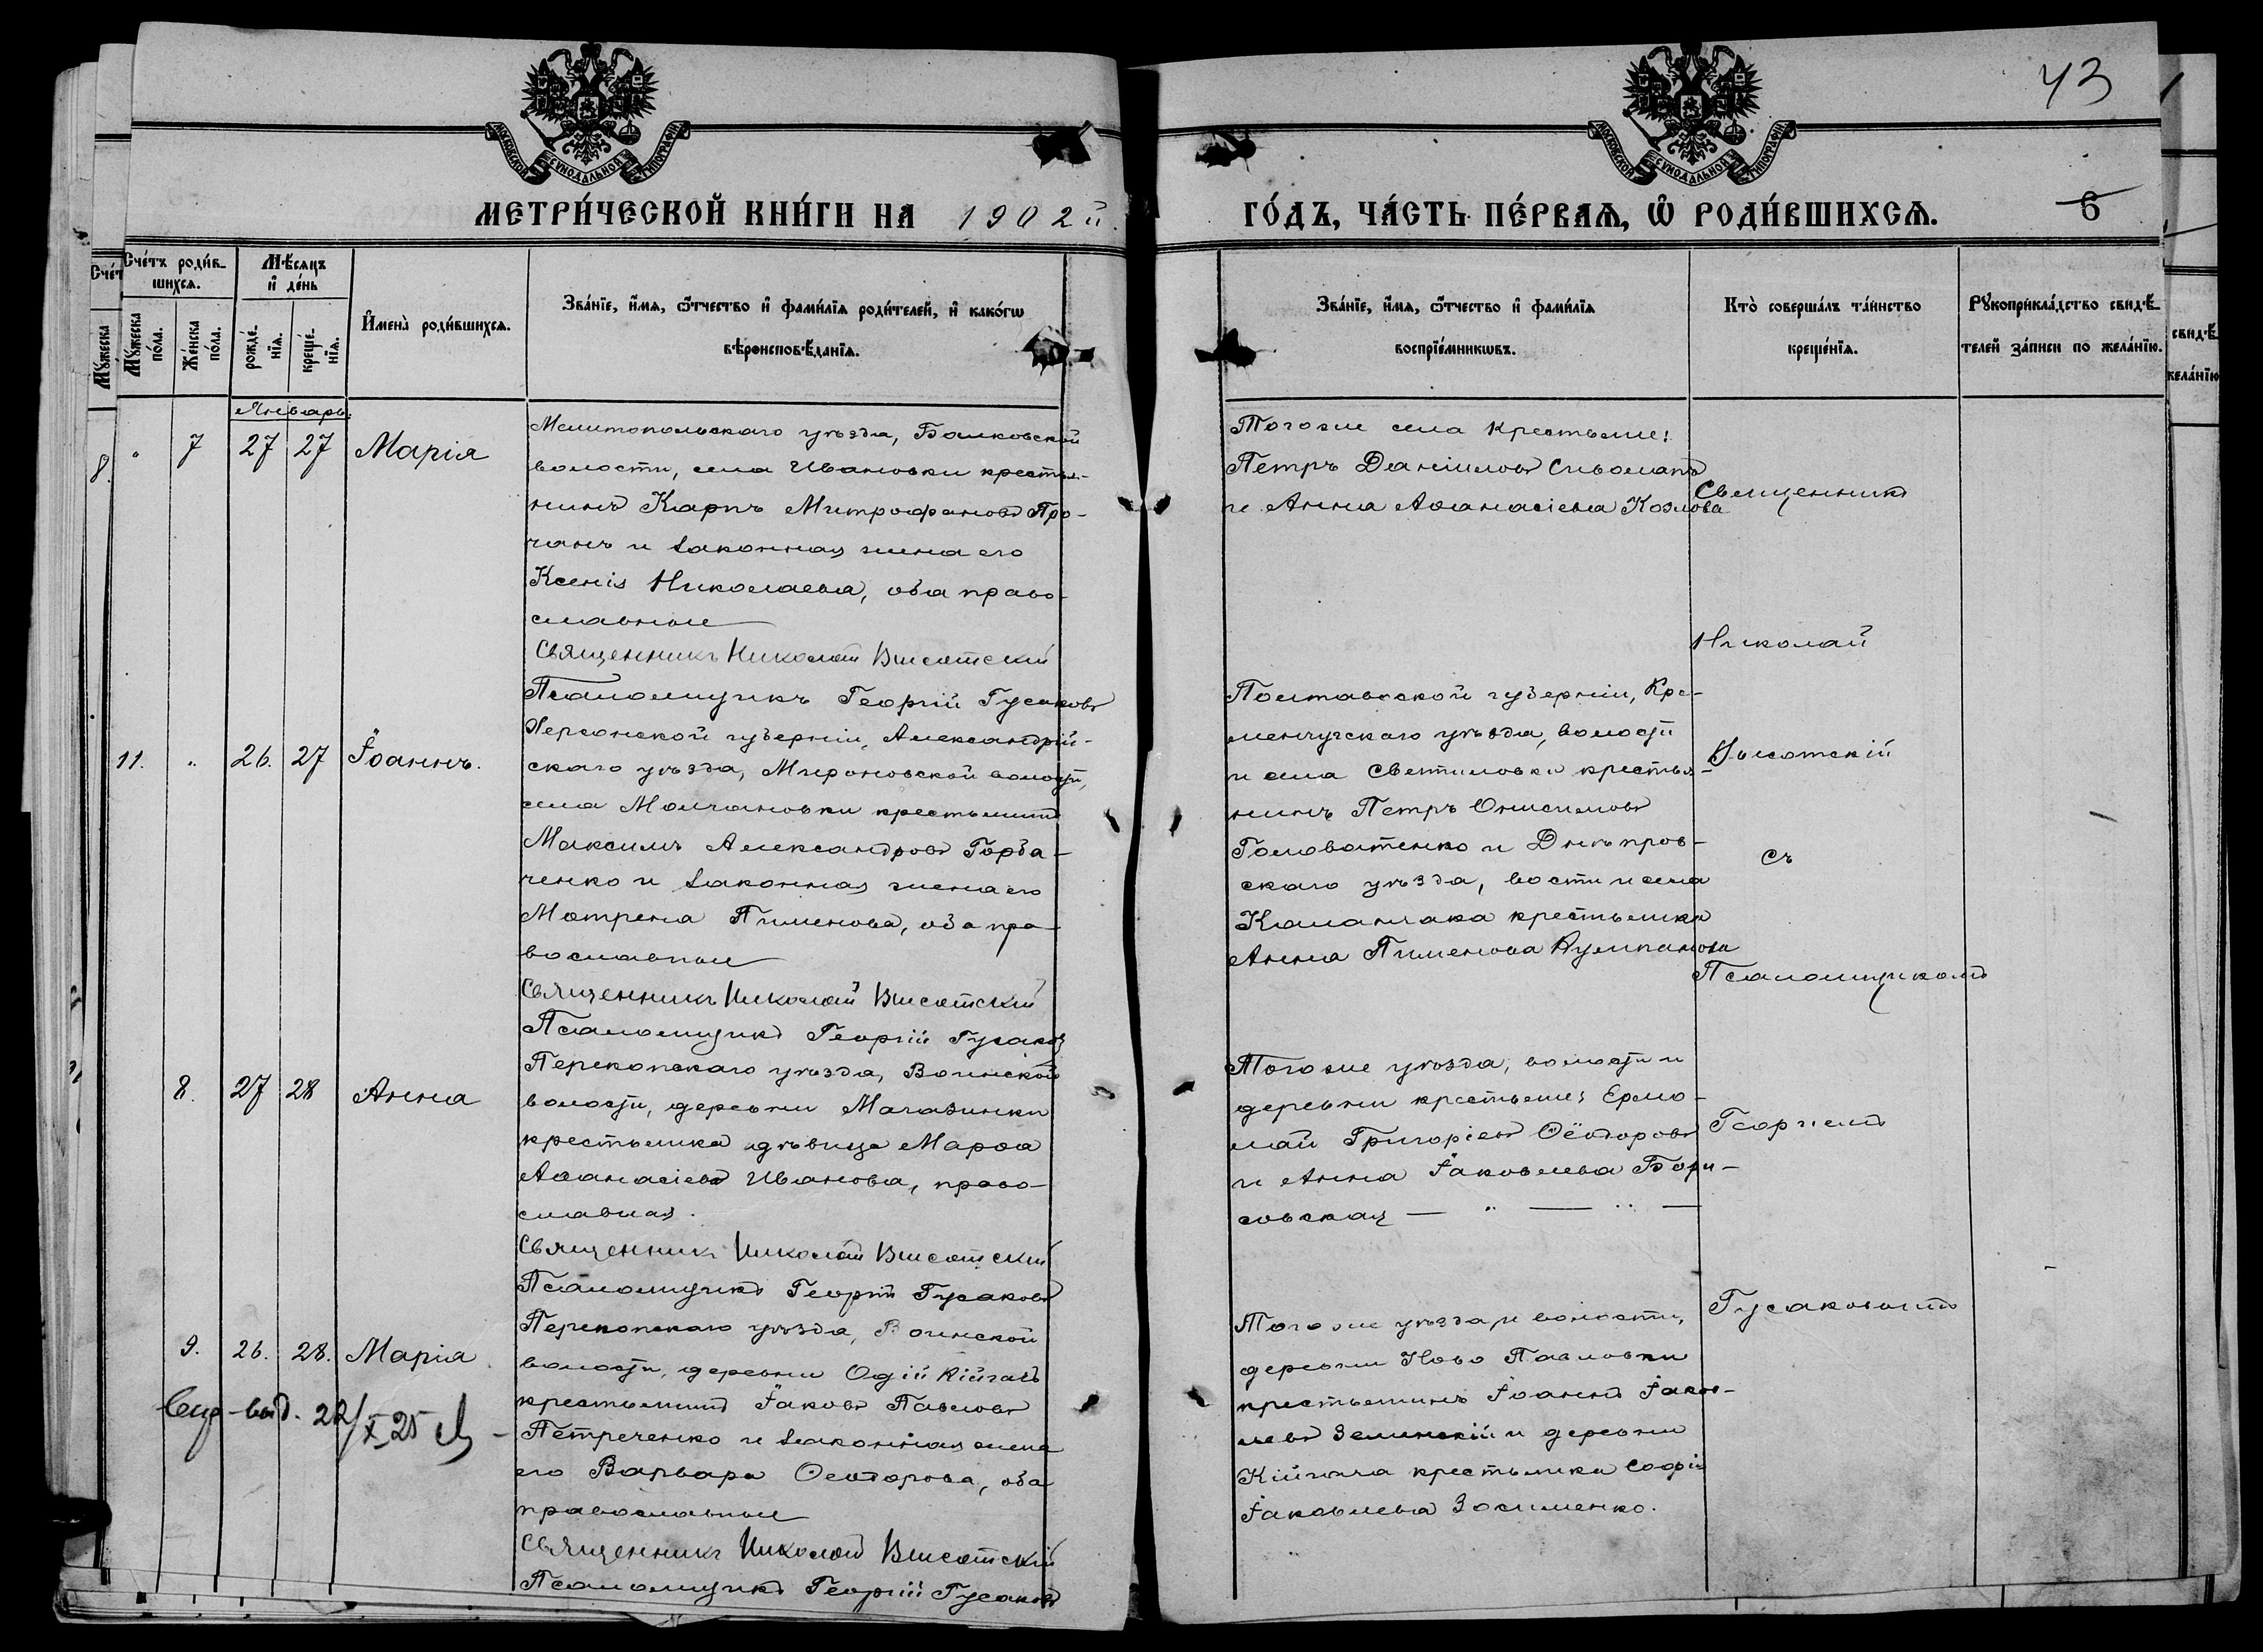 43
МОСКОВСКОЙ СѴНОДАЛЬНОЙ ТИПОГРАФІИ
МОСКОВСКОЙ СѴНОДАЛЬНОЙ ТИПОГРАФІИ
МЕТРИ́ЧЕСКОЙ КНИ́ГИ НА 1902й.
ГО́ДЪ, ЧА́СТЬ ПЕ́РВАѦ, Ѡ РОДИ́ВШИХСѦ.
6
Сче́тъ роди́в-
шихсѧ.
Мѣ́сѧцъ
и де́нь
Мꙋ́жеска
по́ла.
Же́нска
по́ла.
рожде́-
нїѧ.
креще́-
нїѧ.
Имена̀ роди́вшихсѧ.
Зва́нїе, и́мѧ, ѻ́тчество и фами́лїѧ роди́телей, и како́гѡ
вѣроисповѣ́данїѧ.
Зва́нїе, и́мѧ, ѻ́тчество и фами́лїѧ
воспрїе́мникѡвъ.
Кто̀ соверша́лъ та́инство
креще́нїѧ.
Рꙋкоприкла́дство свидѣ́-
телей за́писи по жела́нїю.
Январь
" 7 27 27 Марія
Мелитопольскаго уѣзда, Балковской
волости, села Ивановки крестья-
нинъ Карпъ Митрофановъ Про-
чанъ и законная жена его
Ксенія Николаева, оба право-
славные
Священникъ Николай Высотскій
Псаломщикъ Георгій Гусаковъ
Тогоже села крестьяне:
Петръ Даніиловъ
и Анна Аѳанасіева Козлова
11. " 26. 27 Іоаннъ.
Херсонской губерніи, Александрій-
скаго уѣзда, Мироновской волости,
села Молчановки крестьянинъ
Максимъ Александровъ Горба-
ченко и законная жена его
Мотрена Пименова, оба пра-
вославные
Священникъ Николай Высотскій
Псаломщикъ Георгій Гусаковъ
Полтавской губерніи, Кре-
менчугскаго уѣзда, волости
и села крестья-
нинъ Петръ Онисимовъ
Головатенко и Днѣпров-
скаго уѣзда, вости и села
Каланчака крестьянка
Анна Пименова
8. 27 28 Анна
Перекопскаго уѣзда, Воинской
волости, деревни Магазинки
крестьянка дѣвица Марѳа
Аѳанасіева Иванова, право-
славная.
Священникъ Николай Высотскій
Псаломщикъ Георгій Гусаковъ
Тогоже уѣзда, волости и
деревни крестьяне: Ермо-
лай Григоріевъ Ѳеодоровъ
и Анна Іаковлева Бори-
совская — " — " —
9. 26. 28. Марія
Перекопскаго уѣзда, Воинской
волости, деревни Одій Кійгачъ
крестьянинъ Іаковъ Павловъ
Петреченко и законная жена
его Варвара Ѳеодорова, оба
православные
Священникъ Николай Высотскій
Псаломщикъ Георгій Гусаковъ
Тогоже уѣзда, и волости,
деревни Ново Павловки
крестьянинъ Іоаннъ Іаков-
левъ Зелинскій и деревни
Кійгача крестьянка Софія
Іаковлева Зосименко.
Священникъ
Николай
Высотскій
съ
Псаломщикомъ
Георгіемъ
Гусаковымъ
выд. 22/X 25